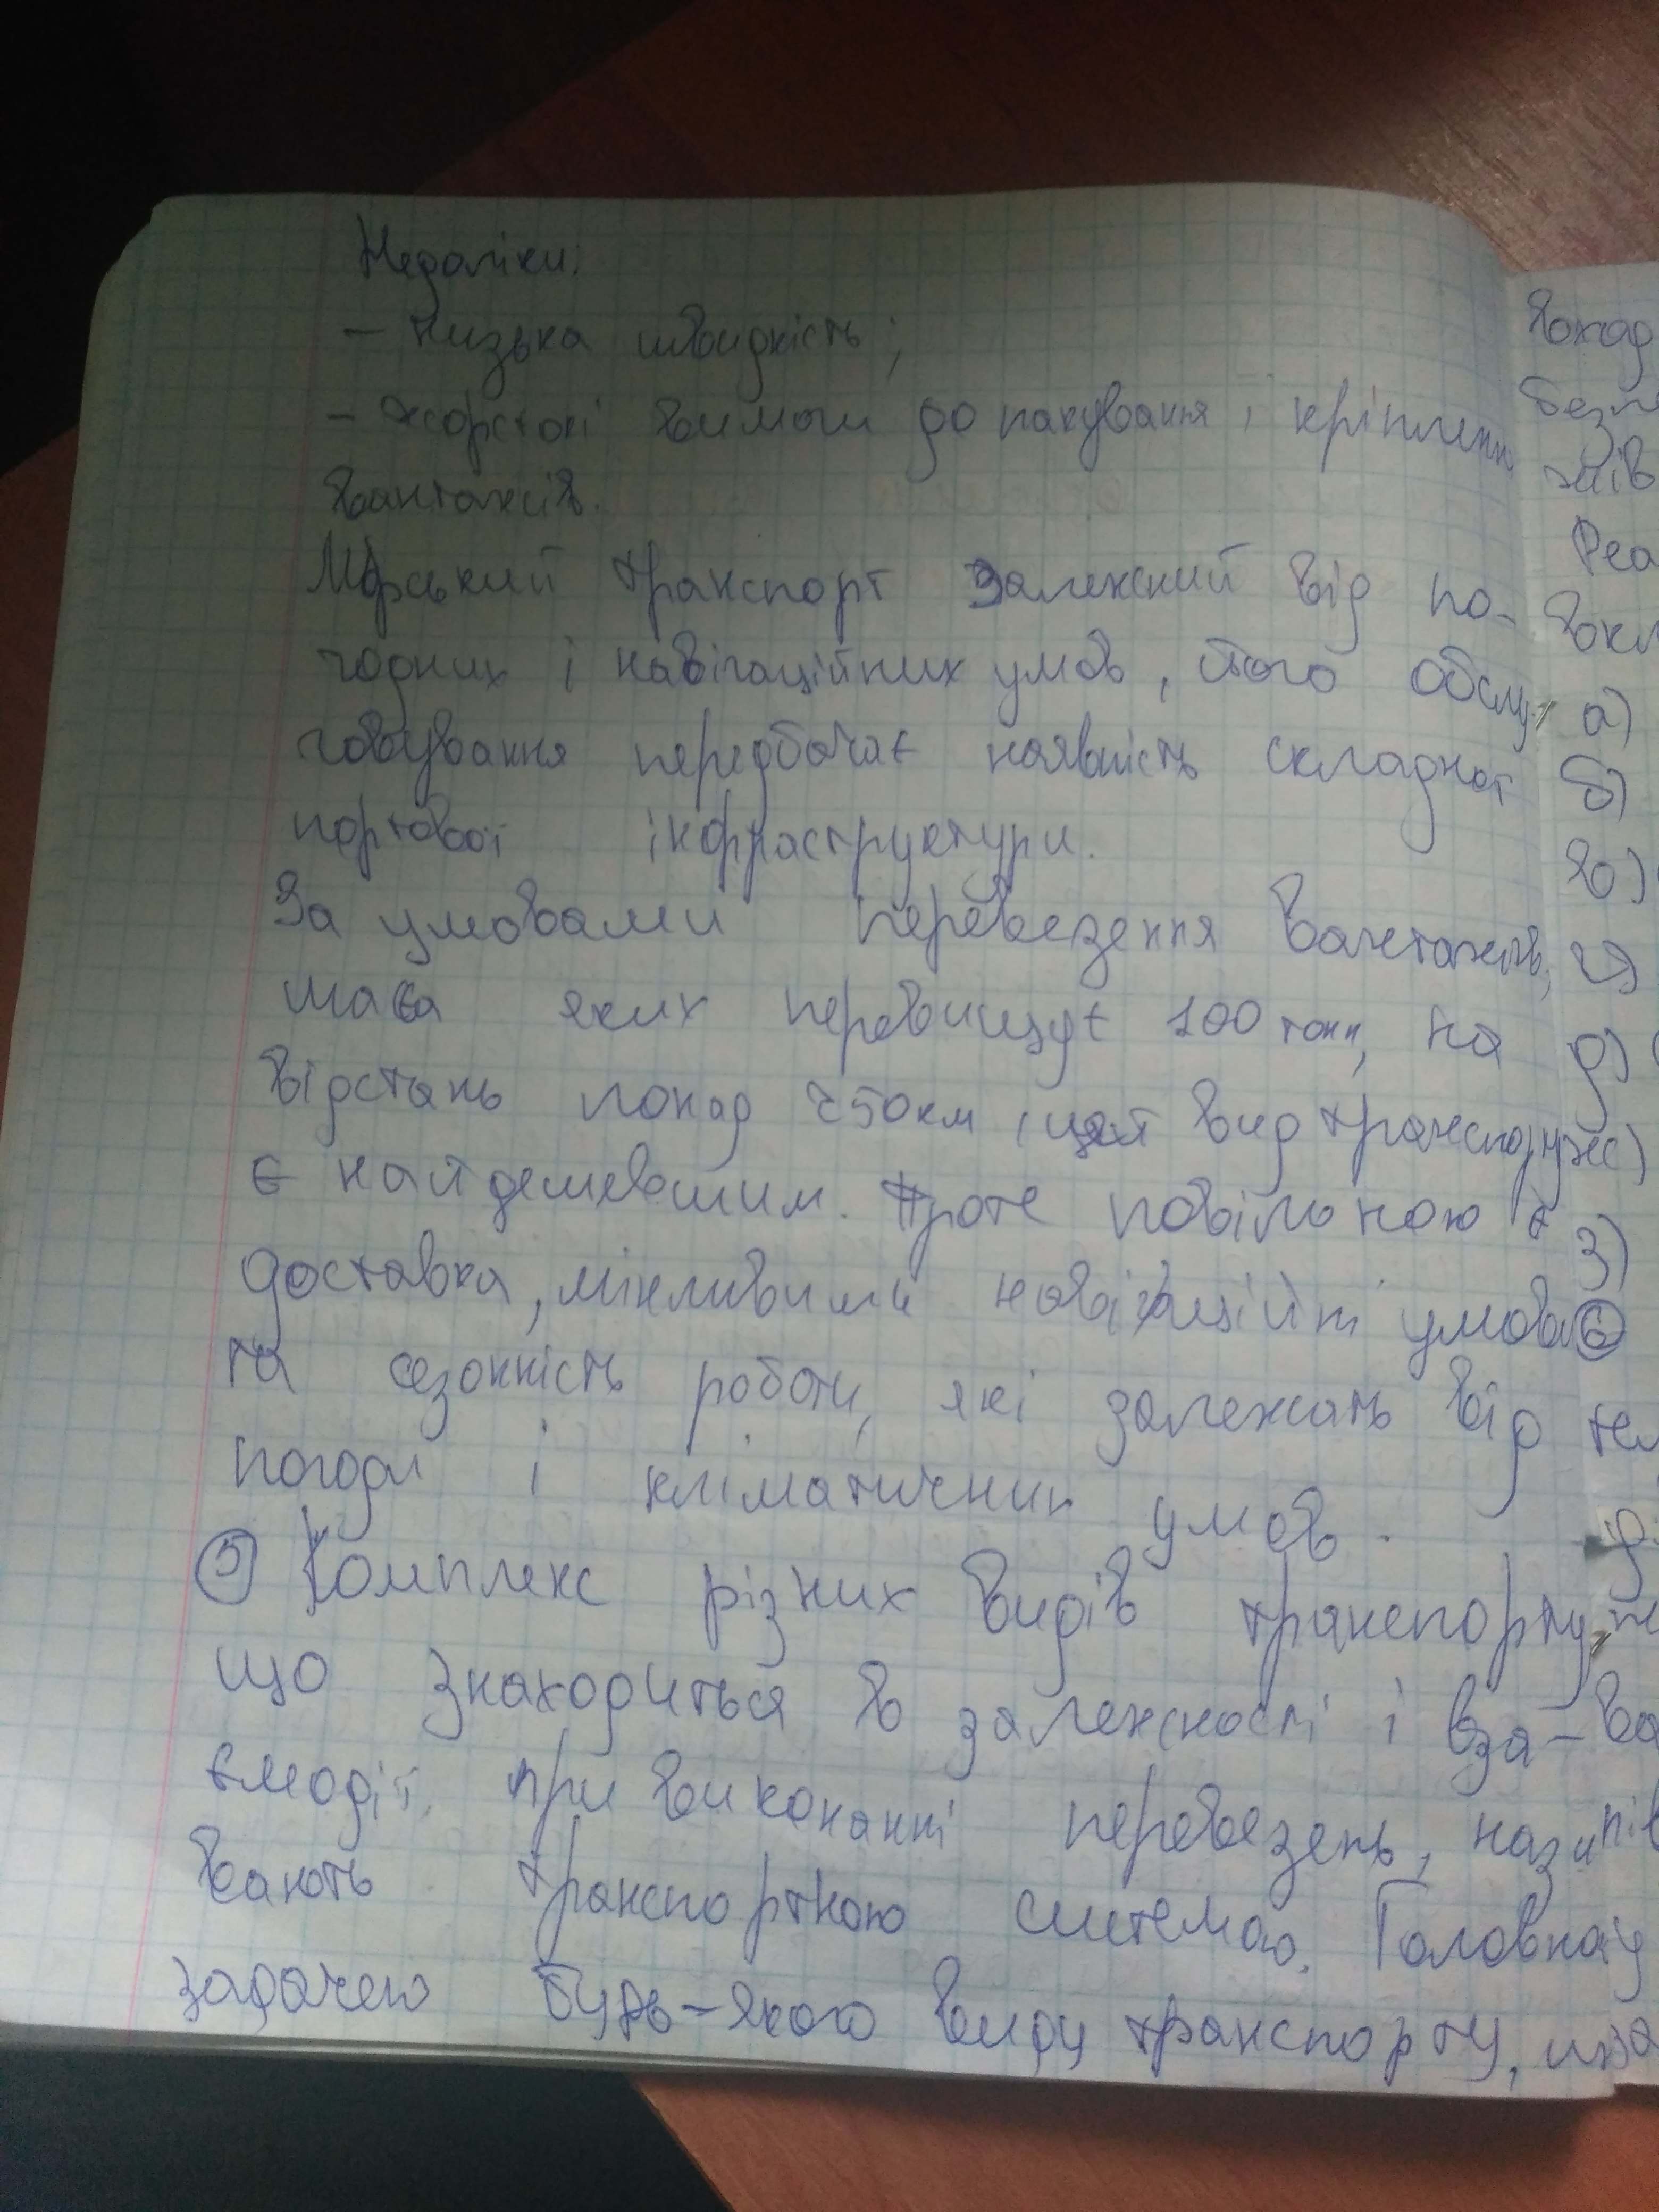 Недоліки:
– низька швидкість;
– жорсткі вимоги до пакування і кріплення
вантажів.
Морський транспорт залежний від по-
годних і навігаційних умов, його обслу-
говування передбачає наявність складної
портової інфраструктури.
За умовами перевезення вантажів,
маса яких перевищує 100 тонн, на
відстань понад 250 км, цей вид транспорту
є найдешевшим. Проте повільною є
доставка, мінливими навігаційні умови
та сезонність роботи, які залежать від
погоди і кліматичних умов.
⑤ Комплекс різних видів транспорту,
що знаходиться в залежності і вза-
ємодії при виконанні перевезень, нази
вають транспортною системою. Головною
задачею будь-якого виду транспорту,
безп
жів
Реа
вкл
а)
б)
в)
г)
д)
ж)
з)
⑥